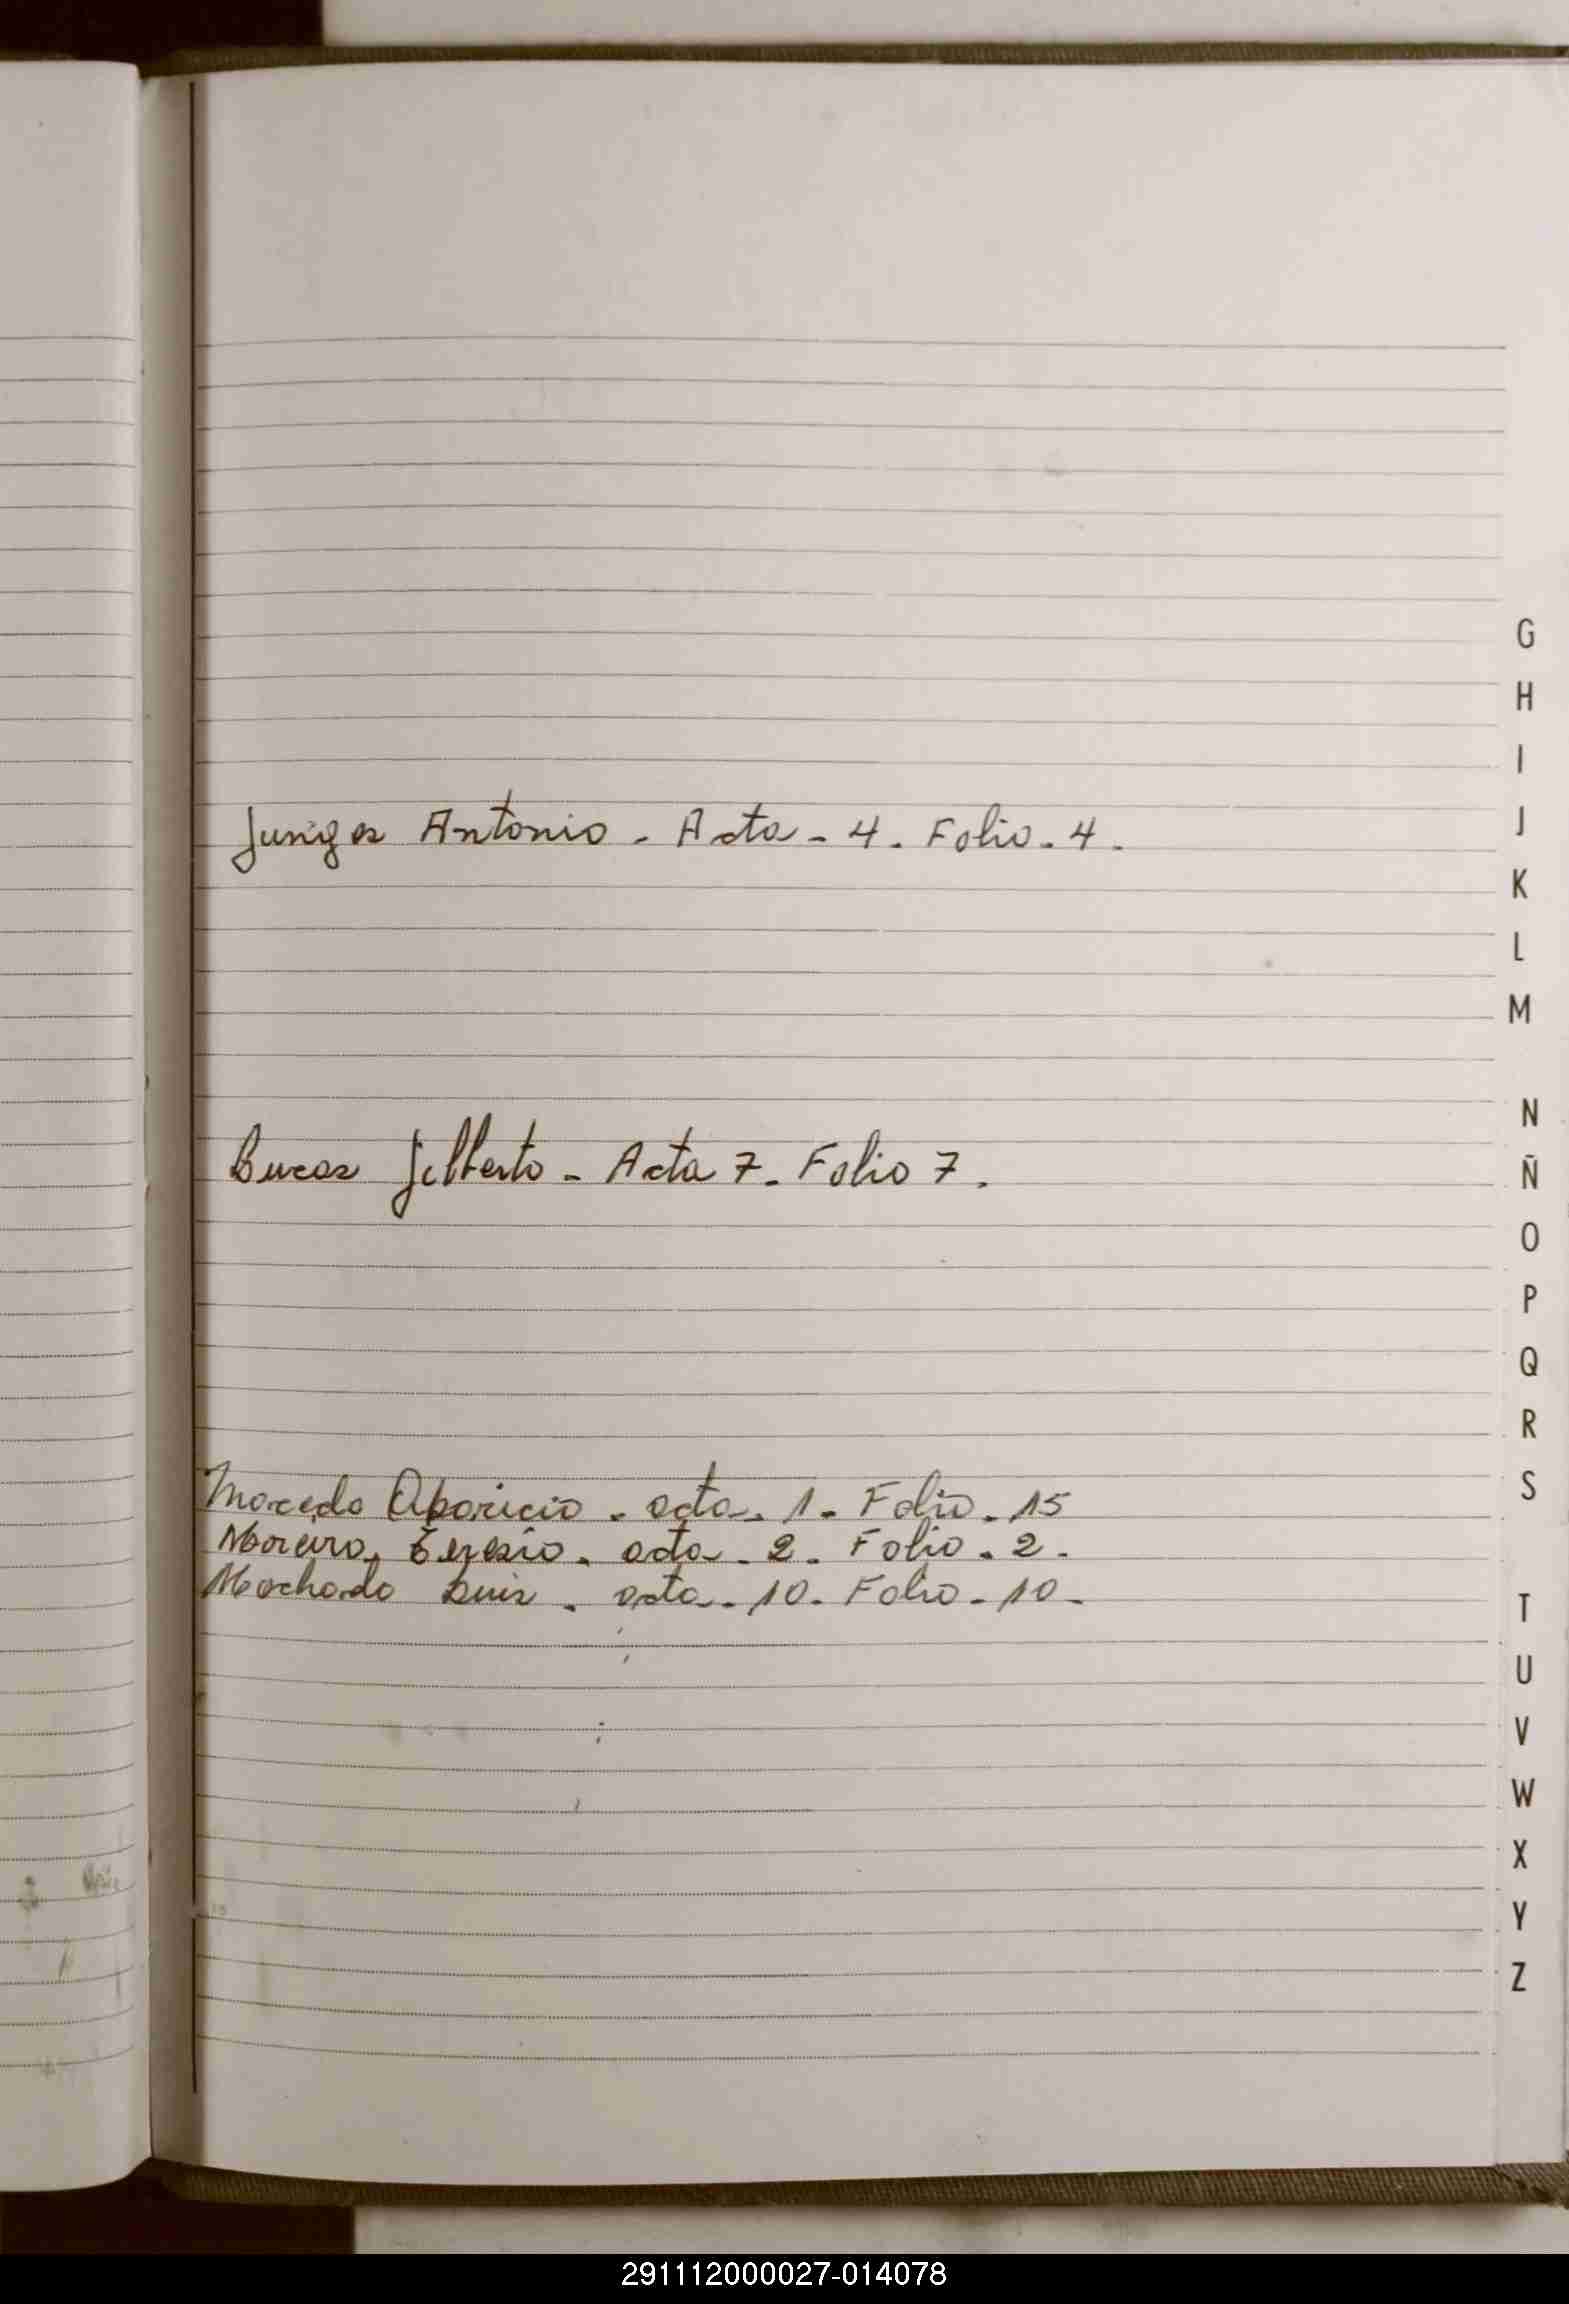 G
H
I
Juniges Antonio - Acta - 4. Folio - 4.
J
K
L
M
N
Gilberto - Acta 7. Folio 7.
Ñ
O
P
Q
R
Macedo Aparicio - acta - 1. Folio - 15
S
Moreira, Teresio. acta - 2. Folio - 2.
Machado Luis. acta - 10. Folio - 10.
T
U
V
W
X
Y
Z
291112000027-014078